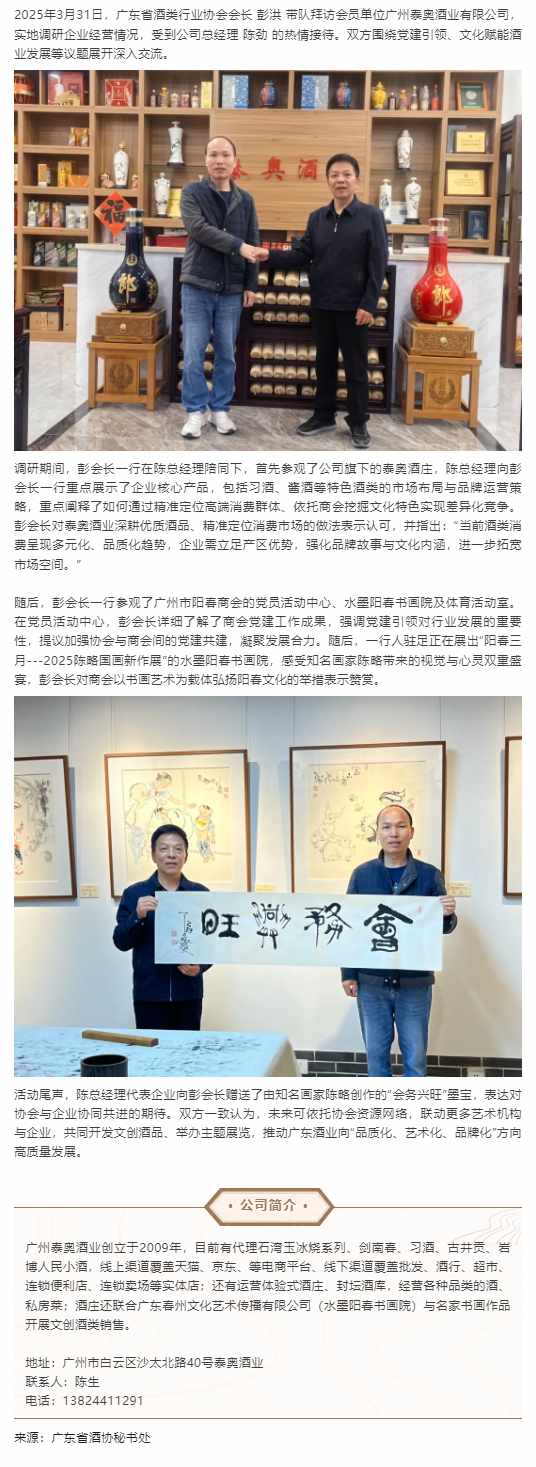 2025年3月31日，广东省酒类行业协会会长 彭洪 带队拜访会员单位广州泰奥酒业有限公司，
实地调研企业经营情况，受到公司总经理 陈劲 的热情接待。双方围绕党建引领、文化赋能酒
业发展等议题展开深入交流。
泰奥酒
福
郎
郎
调研期间，彭会长一行在陈总经理陪同下，首先参观了公司旗下的泰奥酒庄，陈总经理向彭
会长一行重点展示了企业核心产品，包括习酒、酱酒等特色酒类的市场布局与品牌运营策
略，重点阐释了如何通过精准定位高端消费群体、依托商会挖掘文化特色实现差异化竞争。
彭会长对泰奥酒业深耕优质酒品、精准定位消费市场的做法表示认可，并指出：“当前酒类消
费呈现多元化、品质化趋势，企业需立足产区优势，强化品牌故事与文化内涵，进一步拓宽
市场空间。”
随后，彭会长一行参观了广州市阳春商会的党员活动中心、水墨阳春书画院及体育活动室。
在党员活动中心，彭会长详细了解了商会党建工作成果，强调党建引领对行业发展的重要
性，提议加强协会与商会间的党建共建，凝聚发展合力。随后，一行人驻足正在展出“阳春三
月---2025陈略国画新作展”的水墨阳春书画院，感受知名画家陈略带来的视觉与心灵双重盛
宴，彭会长对商会以书画艺术为载体弘扬阳春文化的举措表示赞赏。
旺興務會
活动尾声，陈总经理代表企业向彭会长赠送了由知名画家陈略创作的“会务兴旺”墨宝，表达对
协会与企业协同共进的期待。双方一致认为，未来可依托协会资源网络，联动更多艺术机构
与企业，共同开发文创酒品、举办主题展览，推动广东酒业向“品质化、艺术化、品牌化”方向
高质量发展。
· 公司简介 ·
广州泰奥酒业创立于2009年，目前有代理石湾玉冰烧系列、剑南春、习酒、古井贡、岩
博人民小酒，线上渠道覆盖天猫、京东、等电商平台、线下渠道覆盖批发、酒行、超市、
连锁便利店、连锁卖场等实体店；还有运营体验式酒庄、封坛酒库，经营各种品类的酒、
私房菜；酒庄还联合广东春州文化艺术传播有限公司（水墨阳春书画院）与名家书画作品
开展文创酒类销售。
地址：广州市白云区沙太北路40号泰奥酒业
联系人：陈生
电话：13824411291
来源：广东省酒协秘书处